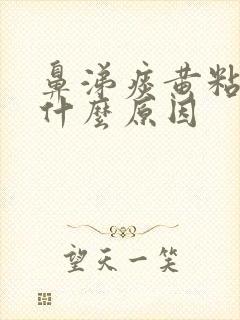 鼻涕痰黄粘
什麼原因
望天一笑